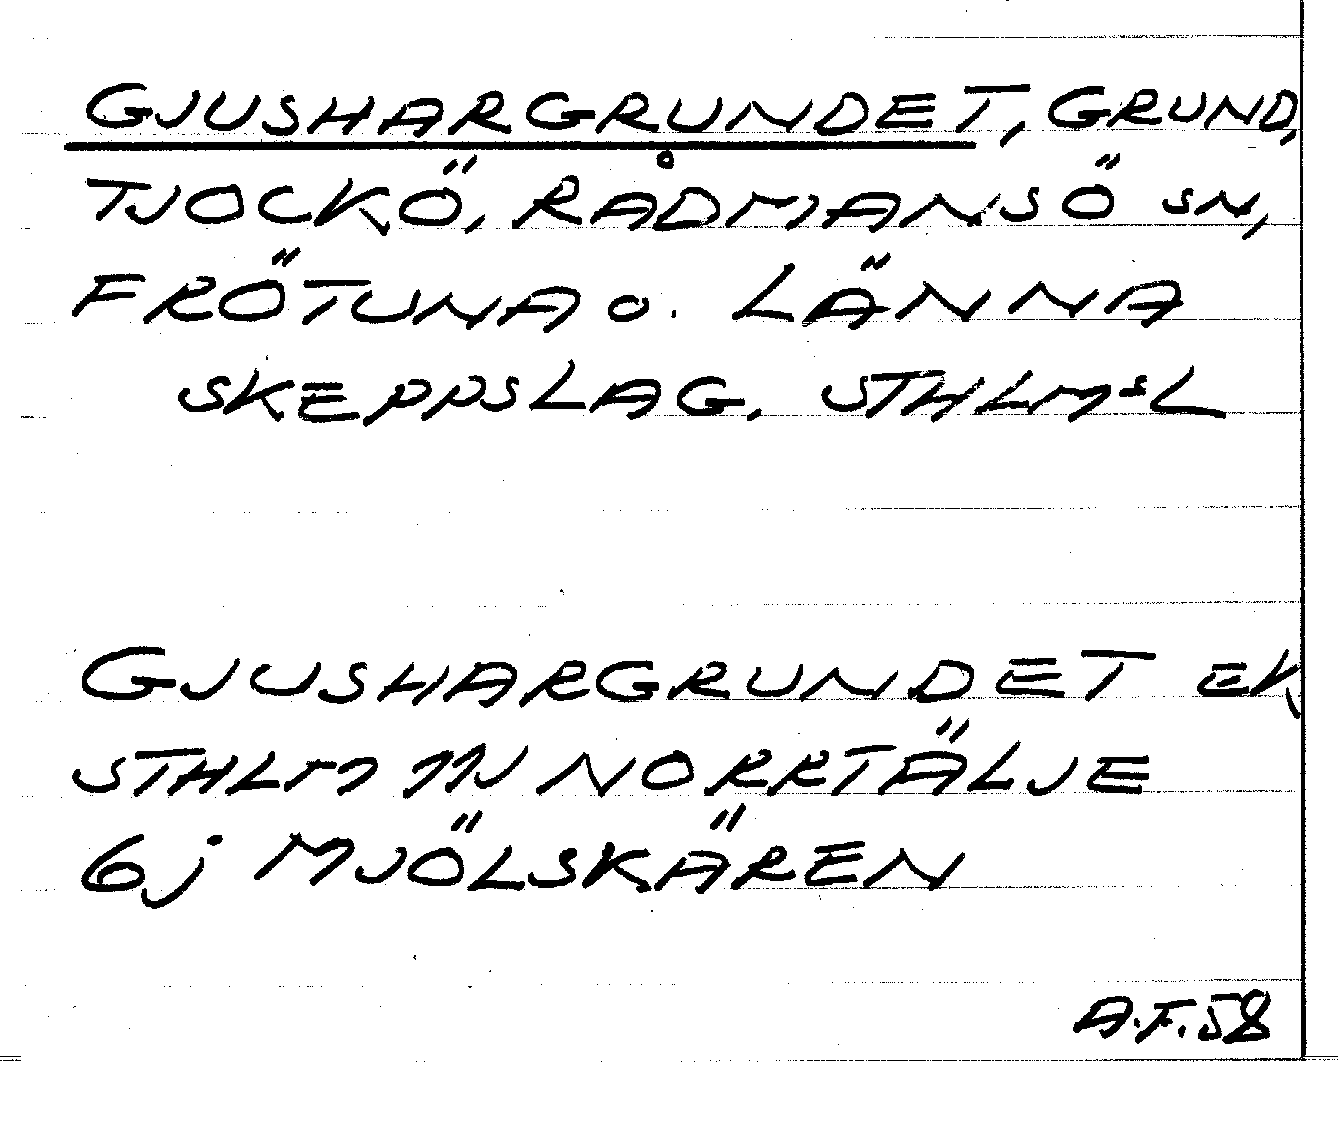 GJUSHARGRUNDET, GRUND,
TJOCKÖ, RÅDMANSÖ SN,
FRÖTUNA O. LÄNNA
SKEPPSLAG. STHLMSL
GJUSHARGRUNDET EK
STHLM 11N NORRTÄLJE
6j MJÖLSKÄREN
A.F.58